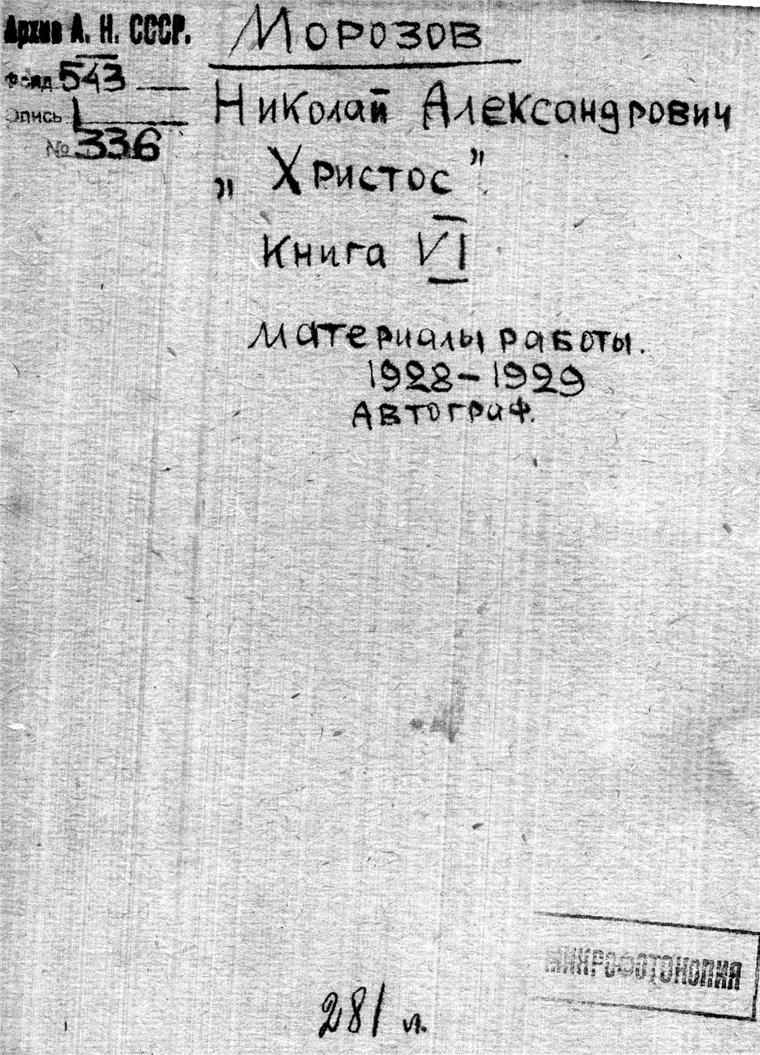 Архив А. Н. СССР.
Фонд 543
Опись 1
№ 336
МОРОЗОВ
Николай Александрович
„Христос”
Книга VI
Материалы работы.
1928–1929
Автограф.
МИКРОФОТОКОПИЯ
281 л.